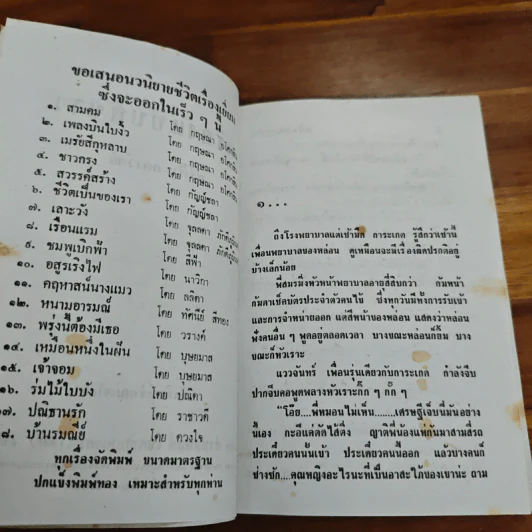 ขอเสนอนวนิยายชีวิตเรื่องเยี่ยม
ซึ่งจะออกในเร็ว ๆ นี้
๑. สามคม โดย กฤษณา
๒. เพลงบินใบงิ้ว โดย กฤษณา
๓. เมรัยสีกุหลาบ โดย กฤษณา
๔. ชาวกรง โดย กฤษณา
๕. สวรรค์สร้าง โดย กัญญ์ชลา
๖. ชีวิตเป็นของเรา โดย กัญญ์ชลา
๗. เลาะวัง โดย จุลลดา
๘. เรือนแรม โดย สีฟ้า
๙. ชมพูเบิกฟ้า โดย
๑๐. อสูรเริงไฟ โดย นาวิกา
๑๑. คฤหาสน์นางแมว โดย ถลิตา
๑๒. หนามอารมณ์ โดย ทัศนีย์ สีทอง
๑๓. พรุ่งนี้ต้องมีเธอ โดย วรางค์
๑๔. เหมือนหนึ่งในฝัน โดย บุษยมาส
๑๕. เจ้าจอม โดย บุษยมาส
๑๖. ร่มไม้ใบบัง โดย ปณิตา
๑๗. ปณิธานรัก โดย ราชาวดี
๑๘. บ้านรมณีย์ โดย ดวงใจ
ทุกเรื่องจัดพิมพ์ ขนาดมาตรฐาน
ปกแข็งพิมพ์ทอง เหมาะสำหรับทุกท่าน
๑...
ถึงโรงพยาบาลแต่เช้ามืด การะเกด รู้สึกว่าเช้านี้
เพื่อนพยาบาลของหล่อน ดูเหมือนจะมีเรื่องผิดปรกติอยู่
บ้างเล็กน้อย
พี่สมรมิ่งหัวหน้าพยาบาลอายุสี่สิบกว่า ก้มหน้า
ก้มตาเช็คบัตรประจำตัวคนไข้ ซึ่งทุกวันมีทั้งการรับเข้า
และการจำหน่ายออก แต่สีหน้าของหล่อน แสดงว่าหล่อน
ฟังคนอื่น ๆ พูดอยู่ตลอดเวลา บางขณะหล่อนก็ยิ้ม บาง
ขณะก็หัวเราะ
แววจันทร์ เพื่อนรุ่นเดียวกับการะเกด กำลังจีบ
ปากจีบคอพูดพลางหัวเราะกิ๊ก ๆ กั๊ก ๆ
"โอ๊ย....พี่หมอนไม่เห็น.......เศรษฐีเจ็บนี่มันอย่าง
นี้เอง กะอีแค่ตัดไส้ติ่ง ญาติพี่น้องแห่กันมาสามสี่รถ
ประเดี๋ยวคนนั้นเข้า ประเดี๋ยวคนนี้ออก แล้วบางคนก็
ช่างซัก....คุณหญิงอะไรนะที่เป็นอาสะใภ้ของเขาน่ะ ถาม